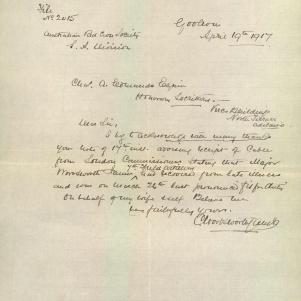 File
No 2015
Goolwa
April 19th 1917
Australian Red Cross Society
S. A. Division
Chas. A. Edmunds Esquire
Honorary Secretary
Verco Buildings
North Terrace
Adelaide
Dear Sir,
I beg to acknowledge with many thanks
your note of 17th inst. advising receipt of Cable
from London Commissioners stating that Major
7th Field Artillery
Wordsworth James has recovered from late illness
and was on March 26th last pronounced fit for duty
On behalf of my wife self Believe me
Very faithfully yours